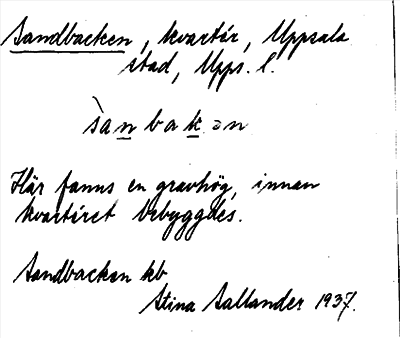 Sandbacken, kvartér, Uppsala
stad, Upps. l.
sànbakən
Här fanns en gravhög, innan
kvartéret bebyggdes.
Sandbacken kb
Stina Sallander 1937.